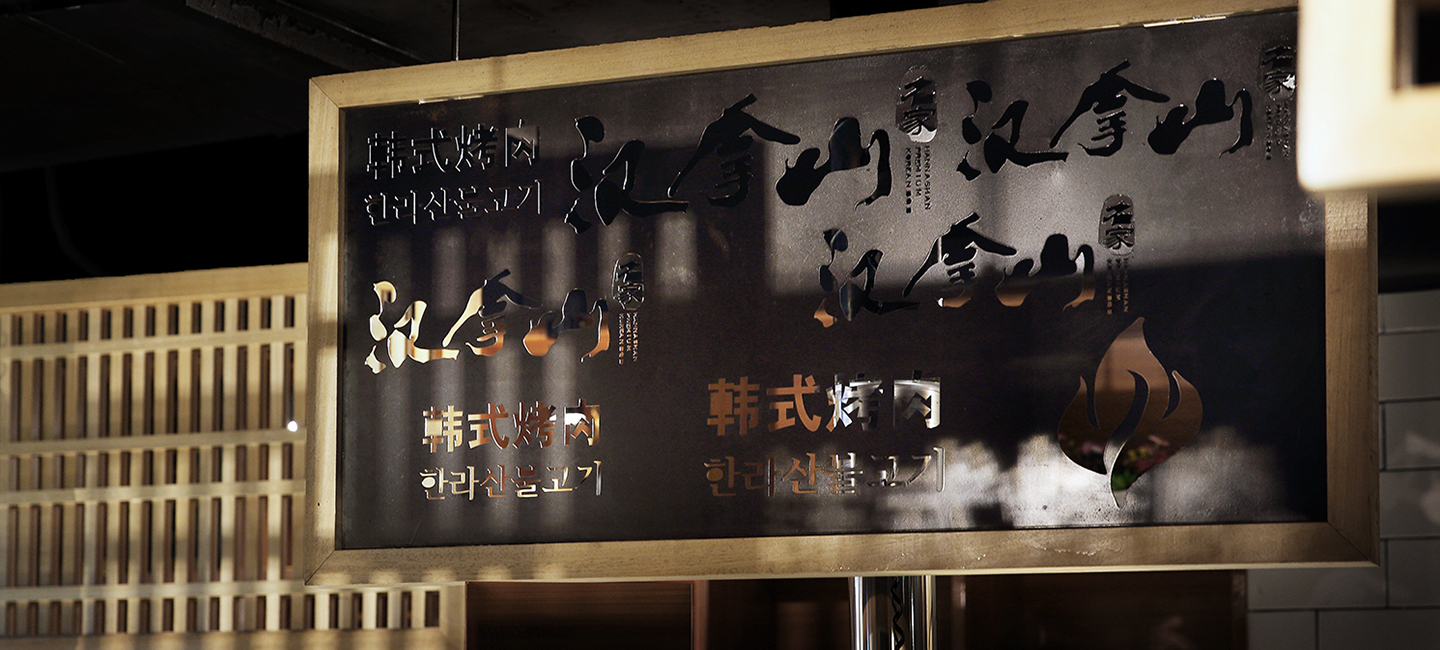 韩式烤肉
한라산불고기
汉拿山
名家
HANNASHAN
PREMIUM
KOREAN
汉拿山
名家
汉拿山
名家
HANNASHAN
PREMIUM
KOREAN
汉拿山
名家
韩式烤肉
한라산불고기
韩式烤肉
한라산불고기